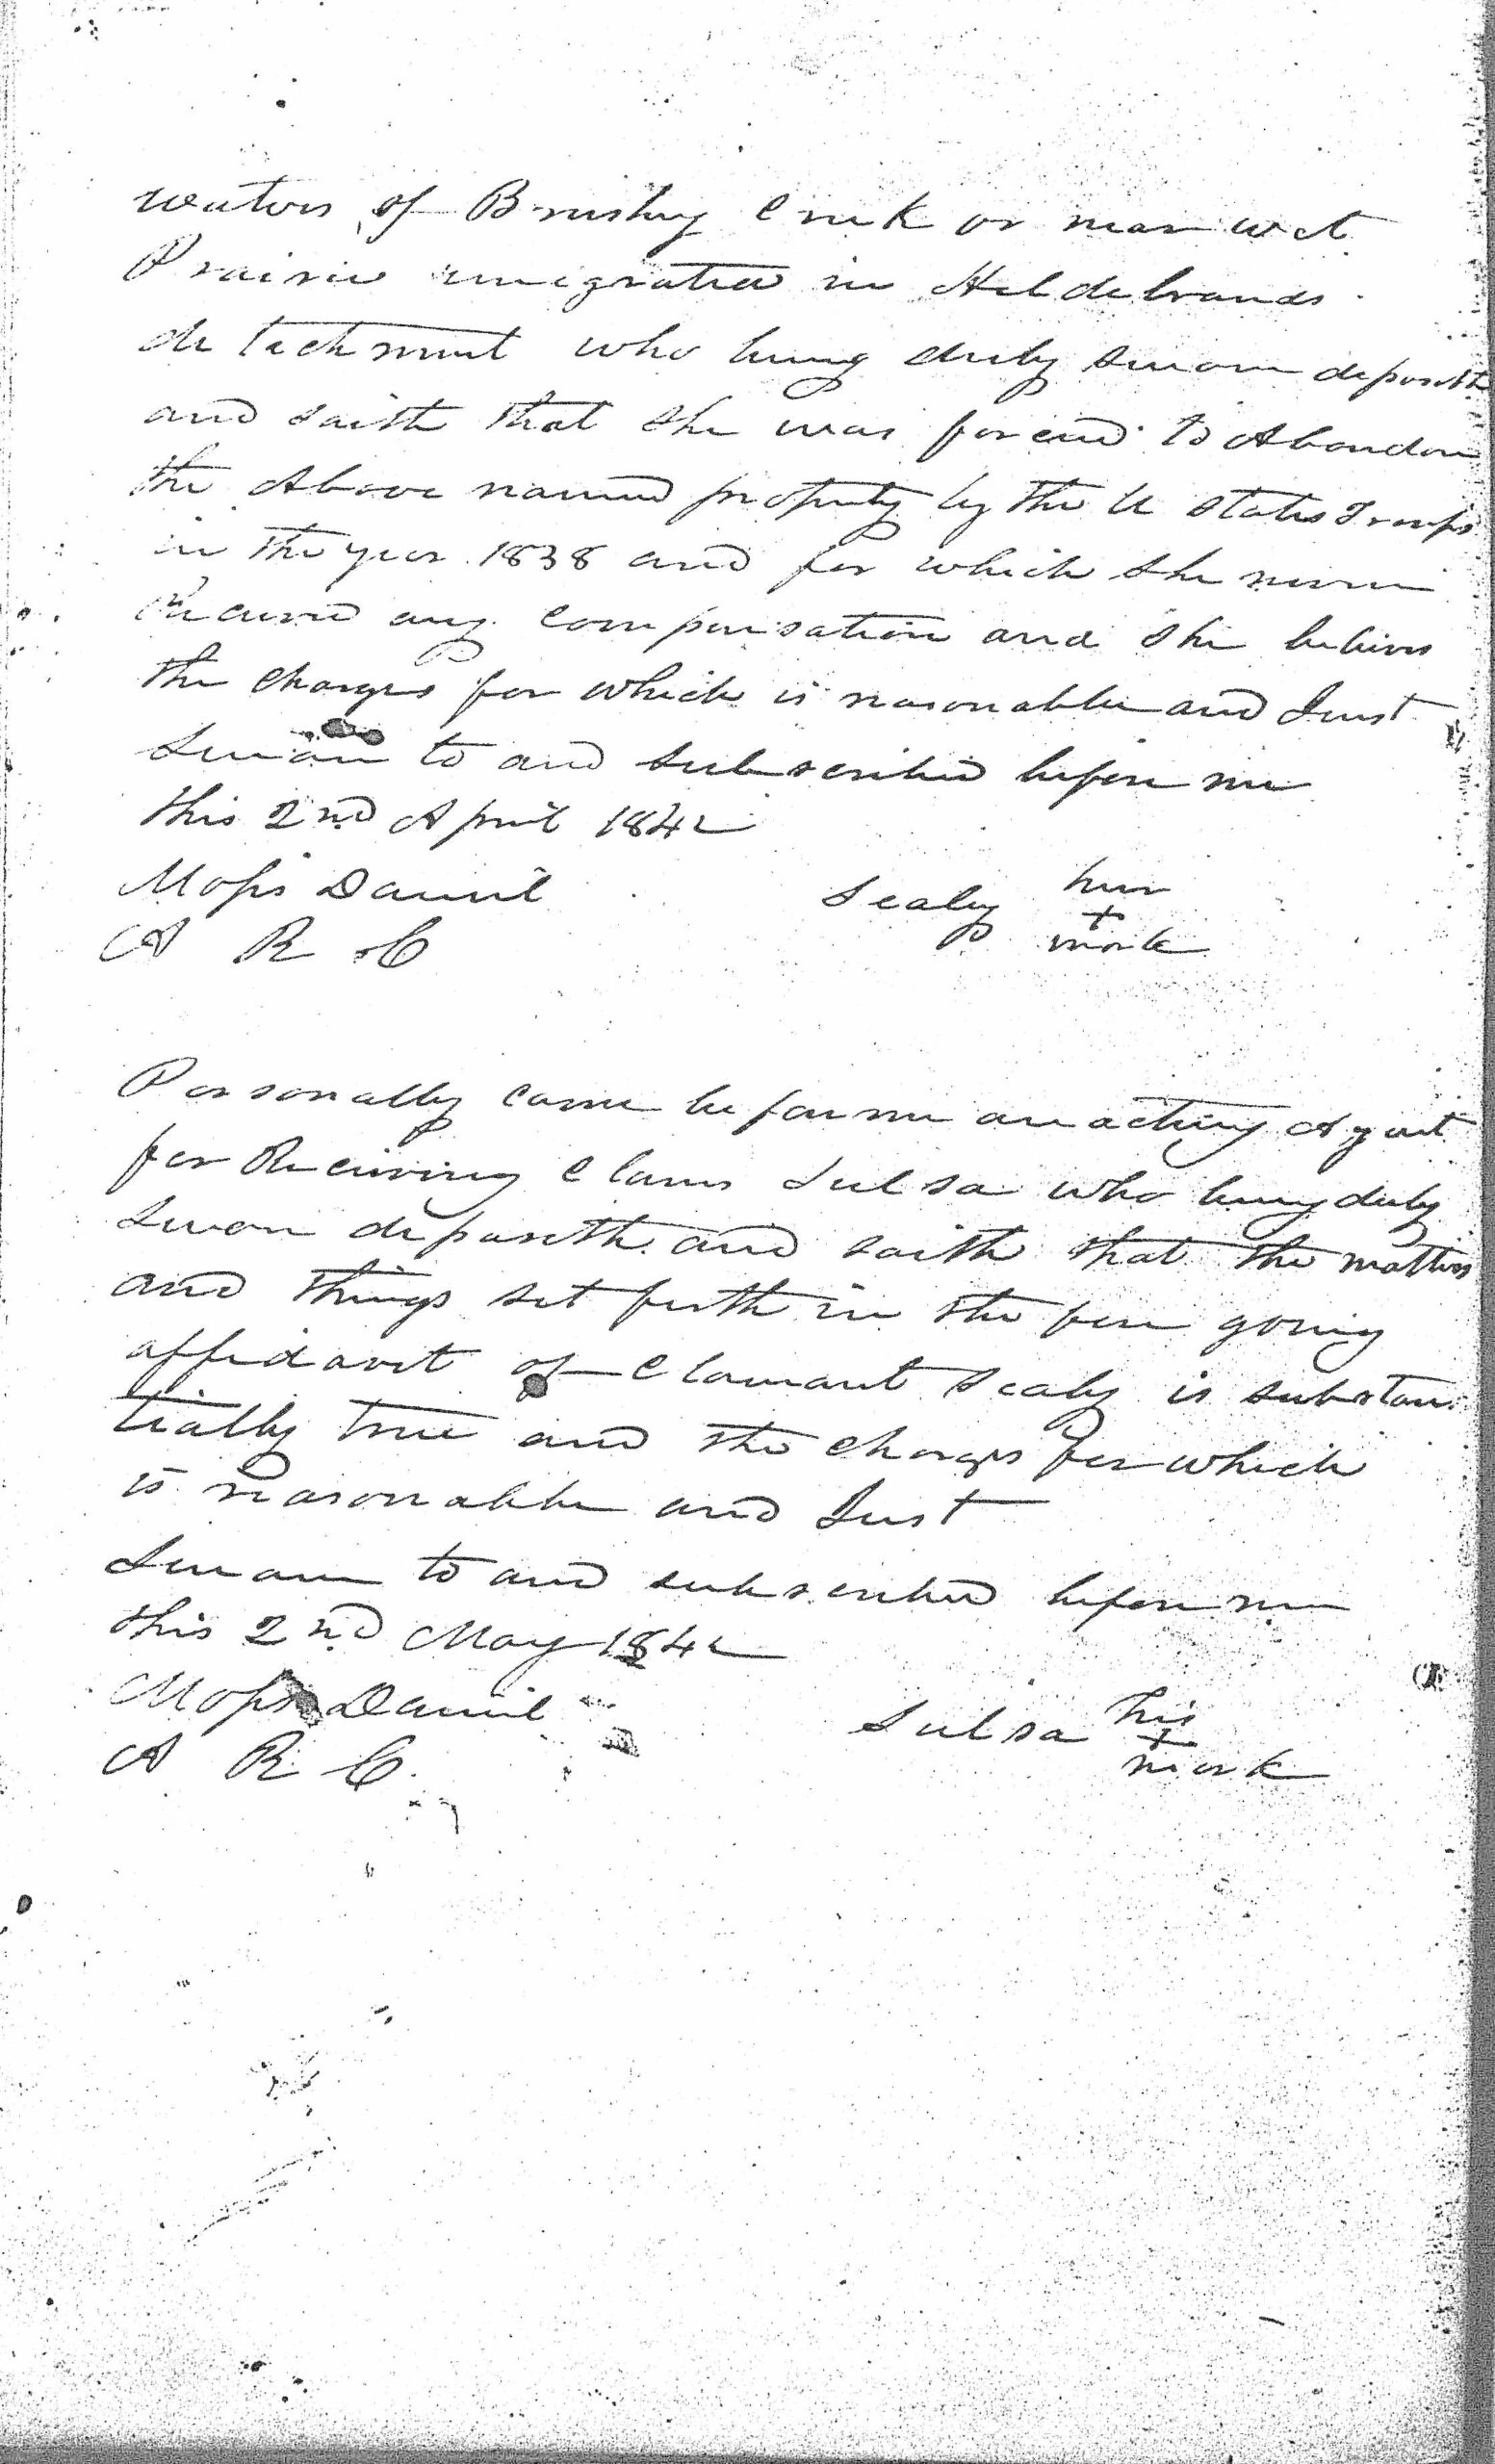 waters of Brushy Creek or near wet
Prairie emigrated in Hildebrands
detachment who being duly sworn deposeth
and saith that she was forced to Abandon
the Above named property by the U States Troops
in the year 1838 and for which she never
Received any compensation and she believes
the charges for which is reasonable and Just
Sworn to and subscribed before me
this 2nd April 1842
Moses Daniel
A R C
Sealy her
+
mark
Personally came before me an acting Agent
for Receiving Claims Sulsa who being duly
Sworn deposeth and saith that the matters
and things set forth in the fore going
affidavit of Claimant Sealy is substan
tially true and the charges for which
is reasonable and Just
Sworn to and subscribed before me
this 2nd May 1842
Moses Daniel
A R C
Sulsa his
+
mark